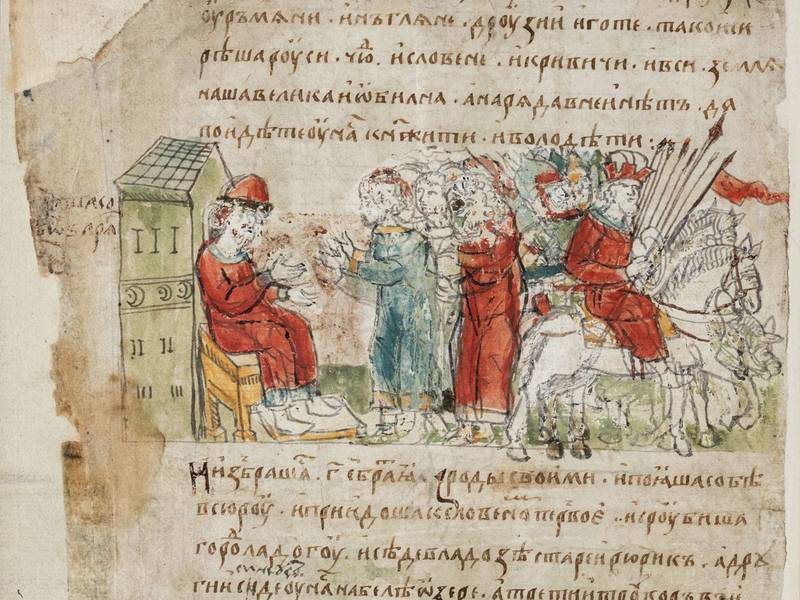 оурмѧни · инъгл҃ѧне · дроузии иготе · такожи
рѣша роуси · чю̑ · исловене · икривичи · ивси · землѧ
наша велика и ѡбилна · а нарѧда в неи нѣтъ · да
поидѣте оу на̑ кнѧжити · и володѣти :·
Низбраша̑ · г҃ е братьꙗ̑ с роды своими · и поꙗша собѣ
всю роу̑ · и придоша къ словено пе̑рвоє · и сроубиша
горо̑ ладогоу · и сѣде в ладозѣ стареи рюрикъ · а дрꙋ
гии сиде оу на на белѣ ѡзере · а третии трꙋворъ въ и